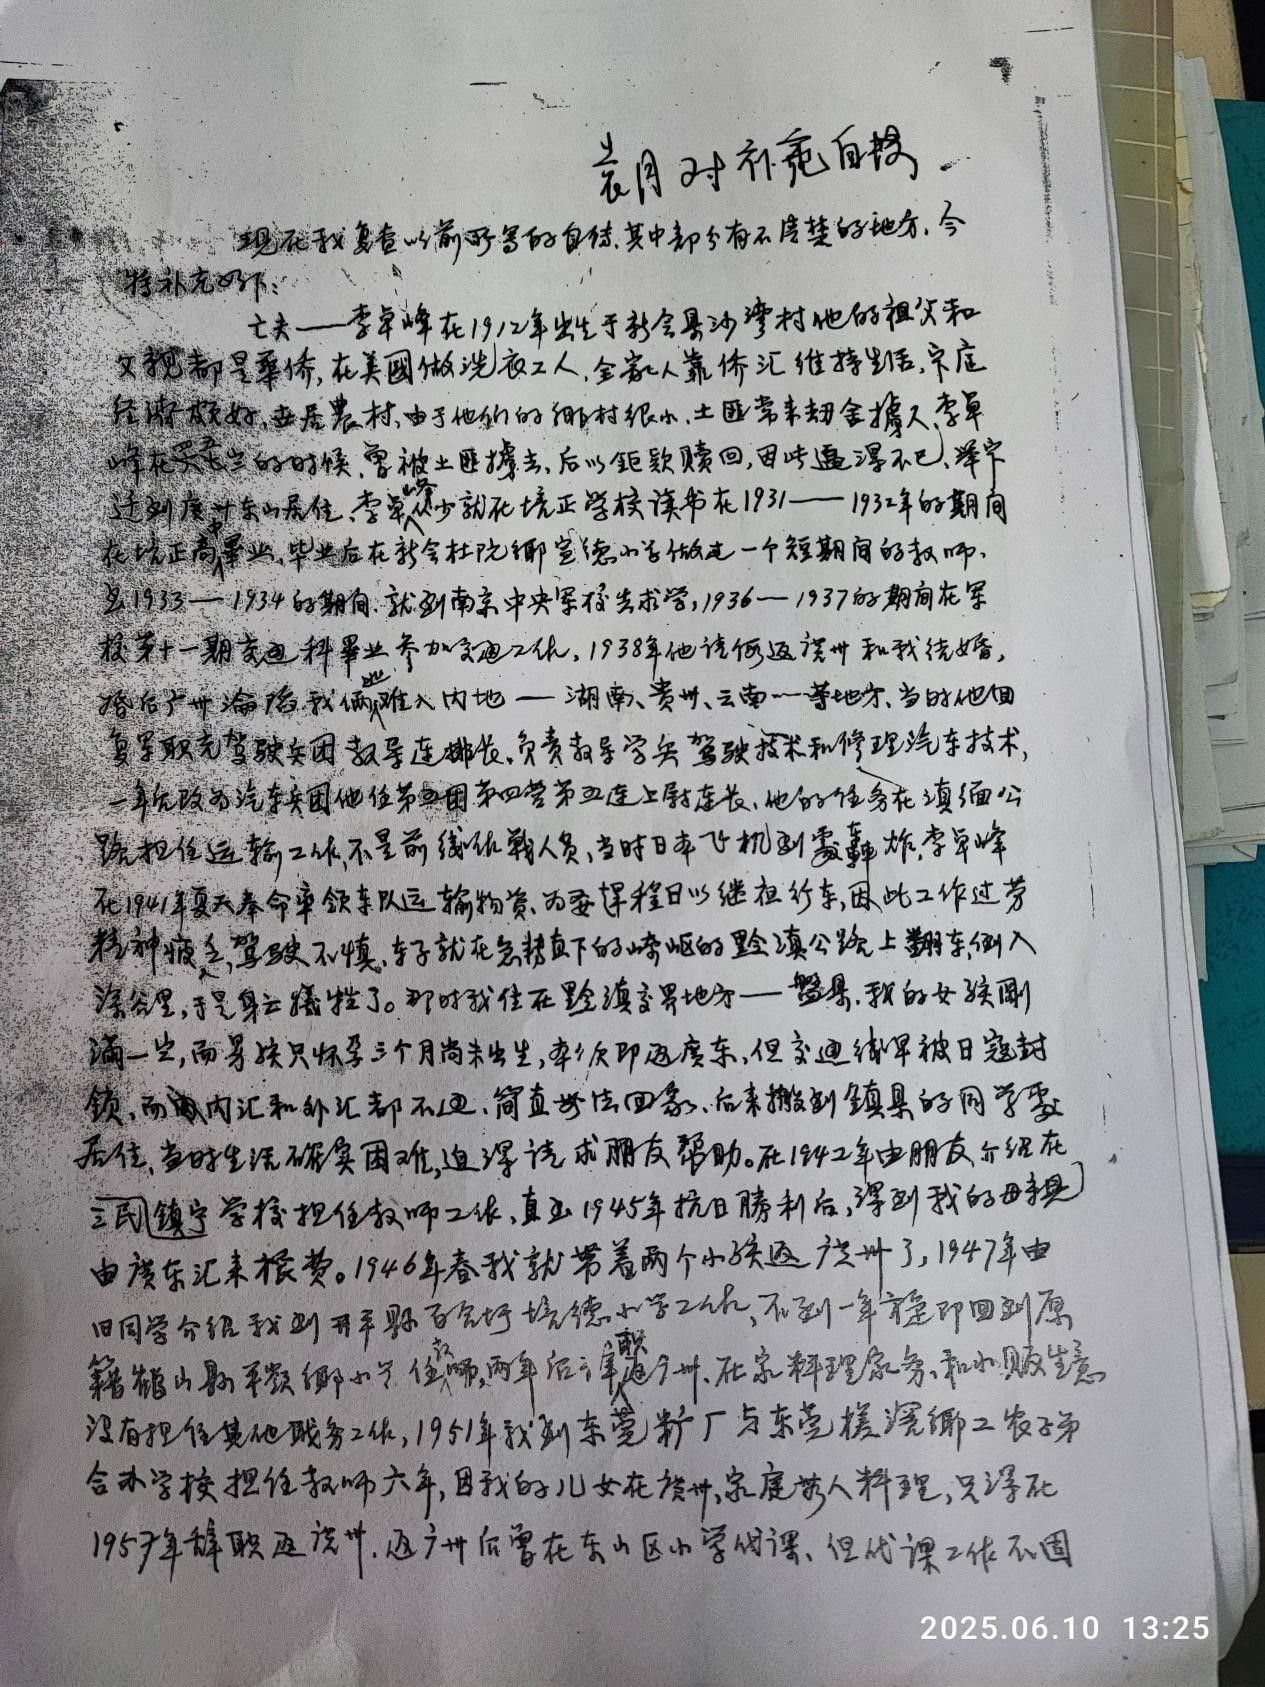 对补充自传
现在我复查以前所写的自传、其中部分有不清楚的地方、今
特补充如下：
亡夫——李卓峰在1912年出生于新会县沙湾村他的祖父和
父亲都是華侨，在美國做洗衣工人，全家人靠侨汇维持生活，家庭
经济颇好，世居農村，由于他们的鄉村很小、土匪常来刼舍擄人，李卓
峰在岁的时候、曾被土匪擄去、后以鉅款赎回，因此逼得不已、举家
迁到廣州东山居住、李卓峰从少就在培正学校读书在1931——1932年的期间
在培正高中畢业、毕业后在新会杜阮鄉宣德小学做过一个短期间的教师、
1933—1934的期间、就到南京中央军校去求学，1936—1937的期间在军
校第十一期交通科畢业参加交通工作，1938年他请假返廣州和我结婚，
婚后广州淪陷我俩逃难入内地——湖南、贵州、云南……等地方、当时他回
复军职充驾駛兵团教导连排长，负责教导学兵驾駛技术和修理汽车技术，
一年后改为汽车兵团他任第五团第四营第五连上尉连长、他的任务在滇缅公
路担任运输工作，不是前线作戰人员、当时日本飞机到處轟炸，李卓峰
在1941年夏天奉命率领车队运输物資、为要趕程日以继夜行车，因此工作过劳
精神疲乏，驾駛不慎、车子就在急转直下的崎岖的黔滇公路上翻车，倒入
深谷里，于是身亡犧牲了。那时我住在黔滇交界地方——盤县、我的女孩剛
满一岁，而男孩只怀孕三个月尚未出生，本欲即返廣东，但交通线早被日寇封
锁、而内汇和外汇都不通、简直無法回家、后来搬到鎮县的同学處
居住、当时生活確实困难，迫得请求朋友帮助。在1942年由朋友介绍在
三民鎮宁学校担任教师工作、直至1945年抗日勝利后，得到我的母親
由廣东汇来旅费。1946年春我就带着两个小孩返廣州了，1947年由
旧同学介绍我到开平縣百合圩培德小学工作、不到一年我即回到原
籍鶴山縣平岭鄉小学任教师，两年后辞職返广州、在家料理家务、和小贩生意
没有担任其他職务工作，1951年我到东莞糖厂与东莞槎滘鄉工农子弟
合办学校担任教师六年，因我的儿女在廣州，家庭無人料理，只得在
1957年辞职返廣州、返广州后曾在东山区小学代课、但代課工作不固
2025.06.10 13:25